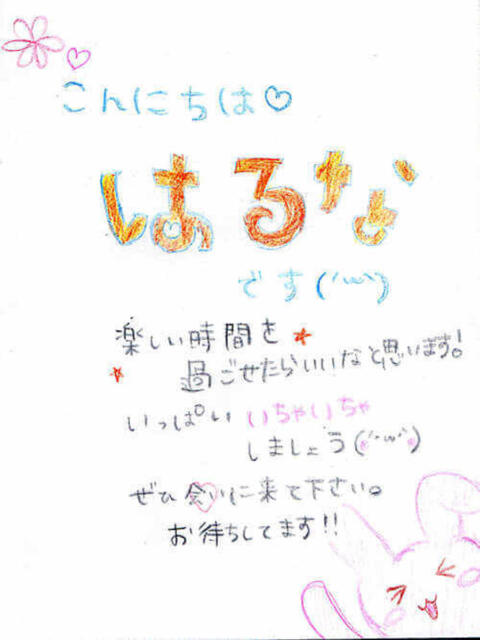 こんにちは♡
はるな
です(´ω`)
楽しい時間を
過ごせたらいいなと思います!
いっぱい いちゃいちゃ
しましょう(*´ω`*)
ぜひ会いに来て下さい。
お待ちしてます!!